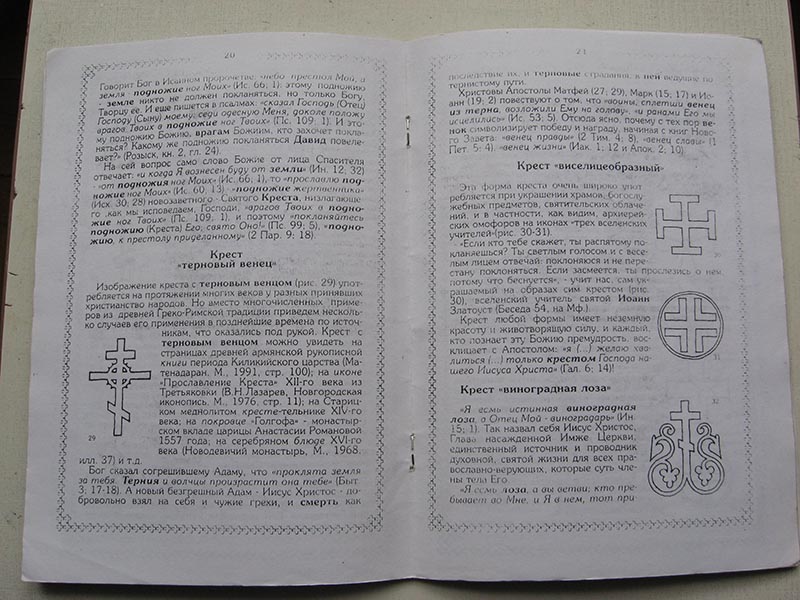 20
Говорит Бог в Исаином пророчестве: «небо престол Мой, а
земля - подножие ног Моих» (Ис. 66; 1); этому подножию
- земле никто не должен покланяться, но только Богу,
Творцу ее. И еще пишется в псалмах: «сказал Господь (Отец)
Господу (Сыну) моему: седи одесную Меня, доколе положу
врагов Твоих в подножие ног Твоих» (Пс. 109; 1). И это-
му подножию Божию, врагам Божиим, кто захочет покла-
няться? Какому же подножию покланяться Давид повеле-
вает?» (Розыск, кн. 2, гл. 24).
На сей вопрос само слово Божие от лица Спасителя
отвечает: «и когда Я вознесен буду от земли» (Ин. 12; 32)
- «от подножия ног Моих» (Ис. 66; 1), то «прославлю под-
ножие ног Моих» (Ис. 60; 13) - «подножие жертвенника»
(Исх. 30; 28) новозаветного - Святого Креста, низлагающе-
го ,как мы исповедаем, Господи, «врагов Твоих в подно-
жие ног Твоих» (Пс. 109; 1), и поэтому «покланяйтесь
подножию (Креста) Его; свято Оно!» (Пс. 99; 5), «подно-
жию, к престолу приделанному» (2 Пар. 9; 18).
Крест
«терновый венец»
Изображение креста с терновым венцом (рис. 29) упот-
ребляется на протяжении многих веков у разных принявших
христианство народов. Но вместо многочисленных приме-
ров из древней Греко-Римской традиции приведем несколь-
ко случаев его применения в позднейшие времена по источ-
никам, что оказались под рукой. Крест с
терновым венцом можно увидеть на
страницах древней армянской рукописной
книги периода Киликийского царства (Ма-
тенадаран. М., 1991, стр. 100); на иконе
«Прославление Креста» XII-го века из
Третьяковки (В.Н.Лазарев, Новгородская
иконопись. М., 1976, стр. 11); на Стариц-
ком меднолитом кресте-тельнике XIV-го
века; на покровце «Голгофа» - монастыр-
ском вкладе царицы Анастасии Романовой
1557 года; на серебряном блюде XVI-го
века (Новодевичий монастырь, М., 1968.
29
илл. 37) и т.д.
Бог сказал согрешившему Адаму, что «проклята земля
за тебя. Терния и волчцы произрастит она тебе» (Быт.
3; 17-18). А новый безгрешный Адам - Иисус Христос - до-
бровольно взял на себя и чужие грехи, и смерть как
21
последствие их, и терновые страдания, к ней ведущие по
тернистому пути.
Христовы Апостолы Матфей (27; 29), Марк (15; 17) и Ио-
анн (19; 2) повествуют о том, что «воины, сплетши венец
из терна, возложили Ему на голову», «и ранами Его мы
исцелились» (Ис. 53; 5). Отсюда ясно, почему с тех пор ве-
нок символизирует победу и награду, начиная с книг Ново-
го Завета: «венец правды» (2 Тим. 4; 8), «венец славы» (1
Пет. 5; 4), «венец жизни» (Иак. 1; 12 и Апок. 2; 10).
Крест «виселицеобразный»
Эта форма креста очень широко упот-
ребляется при украшении храмов, богослу-
жебных предметов, святительских облаче-
ний, и в частности, как видим, архиерей-
ских омофоров на иконах «трех вселенских
учителей»(рис. 30-31).
30
- «Если кто тебе скажет, ты распятому по-
кланяешься? Ты светлым голосом и с весе-
лым лицем отвечай: поклоняюся и не пере-
стану поклоняться. Если засмеется, ты прослезись о нем,
потому что беснуется», - учит нас, сам ук-
рашаемый на образах сим крестом (рис.
30), вселенский учитель святой Иоанн
Златоуст (Беседа 54, на Мф.)
Крест любой формы имеет неземную
красоту и животворящую силу, и каждый,
кто познает эту Божию премудрость, вос-
клицает с Апостолом: «я (...) желаю хва-
литься (...) только крестом Господа на-
шего Иисуса Христа» (Гал. 6; 14)!
31
Крест «виноградная лоза»
32
«Я есмь истинная виноградная
лоза, а Отец Мой - виноградарь» (Ин.
15; 1). Так назвал себя Иисус Христос,
Глава насажденной Имже Церкви,
единственный источник и проводник
духовной, святой жизни для всех пра-
вославно-верующих, которые суть чле-
ны тела Его.
«Я есмь лоза, а вы ветви; кто пре-
бывает во Мне, и Я в нем, тот при